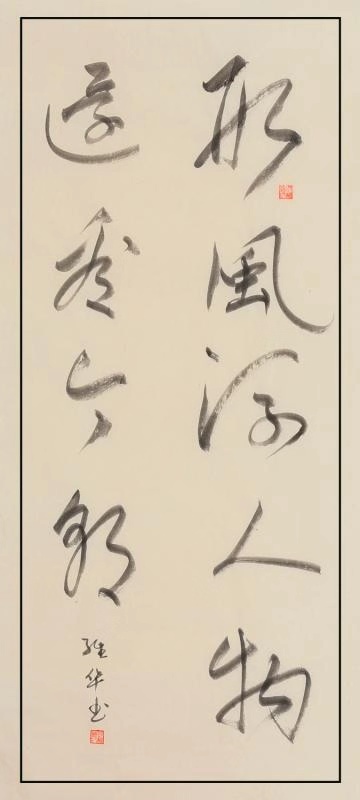 數風流人物
還看今朝
华书